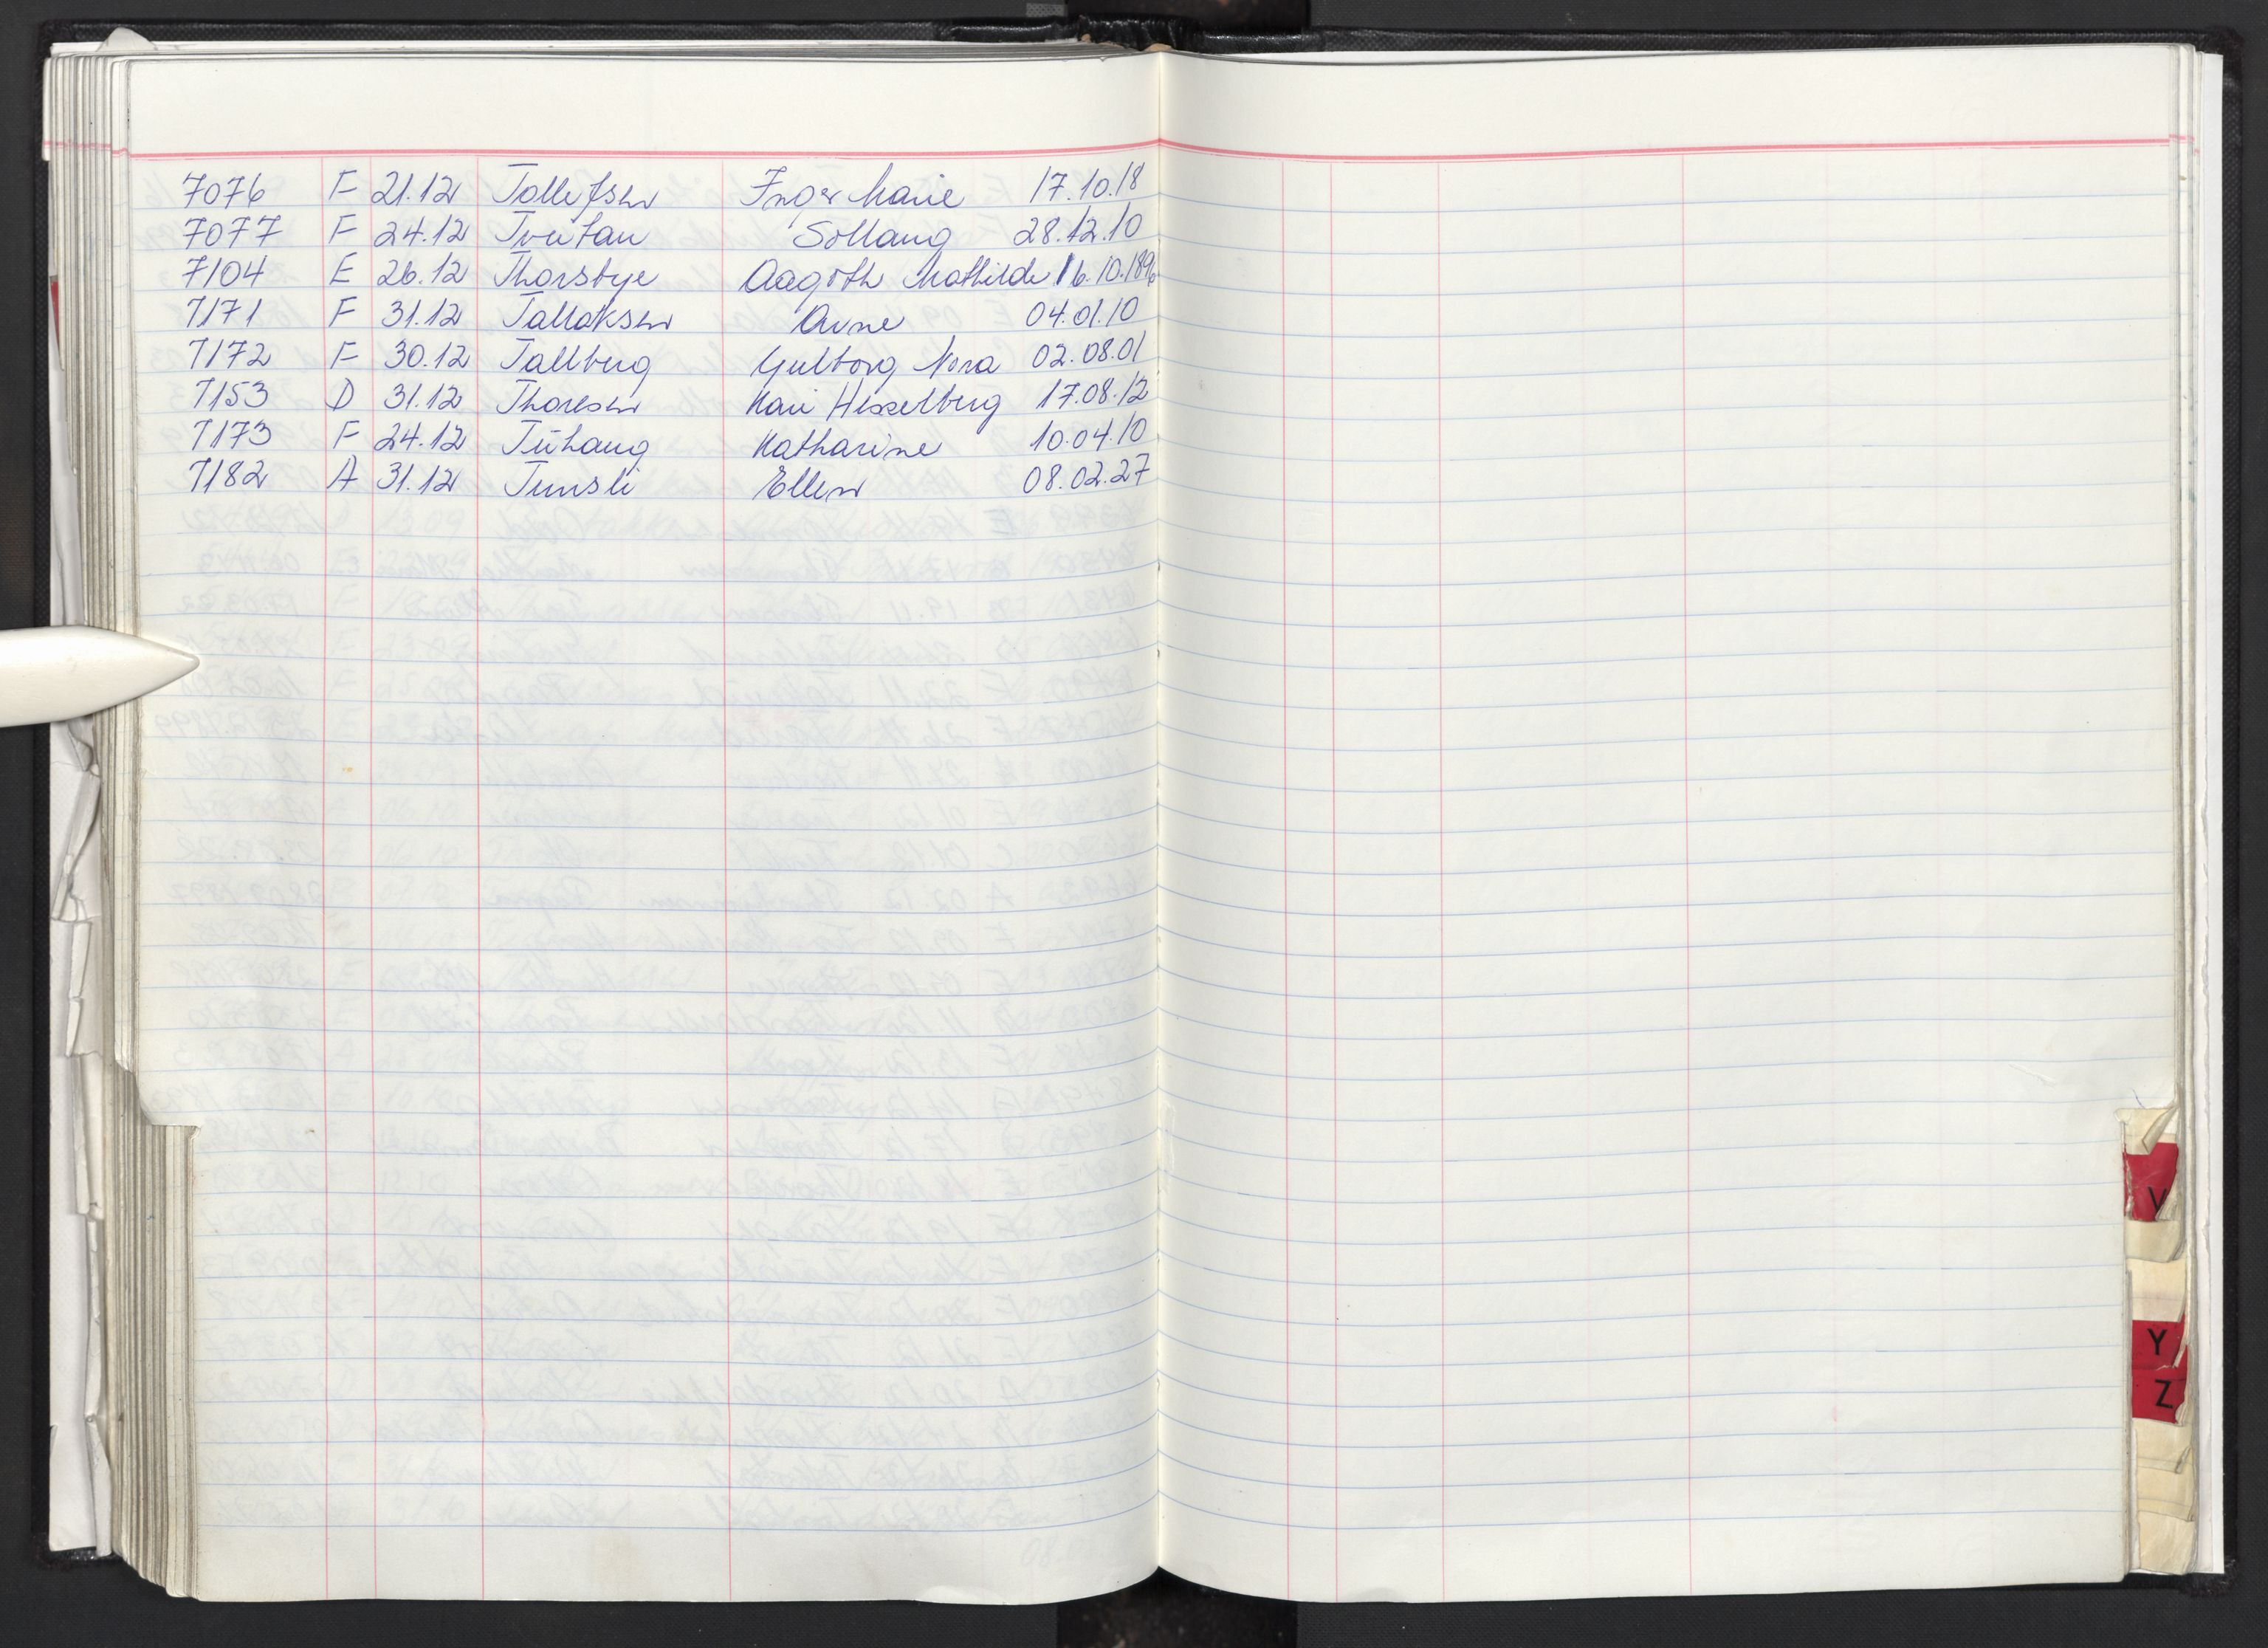 7076 F 21.12 Tollefsen Inger Marie 17.10.18
7077 F 24.12 Tveitan Sollaug 28.12.10
7104 E 26.12 Thorsbye Aagoth Mathilde 16.10.1896
7171 F 31.12 Tallaksen Arne 04.01.10
7172 F 30.12 Tallberg Gulborg Nora 02.08.01
7153 D 31.12 Thoresen Kari Hesselberg 17.08.12
7173 F 24.12 Katharine 10.04.10
7182 A 31.12 Ellen 08.02.27
V
Y
Z